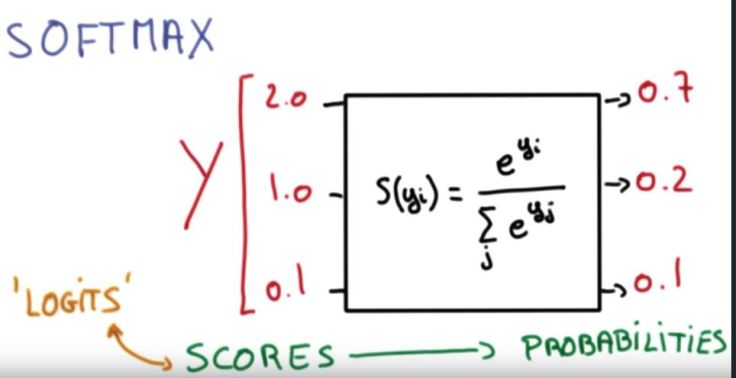 SOFTMAX
Y
2.0
1.0
0.1
S(yi) = e^yi / Σj e^yj
→0.7
→0.2
→0.1
'LOGITS'
SCORES → PROBABILITIES